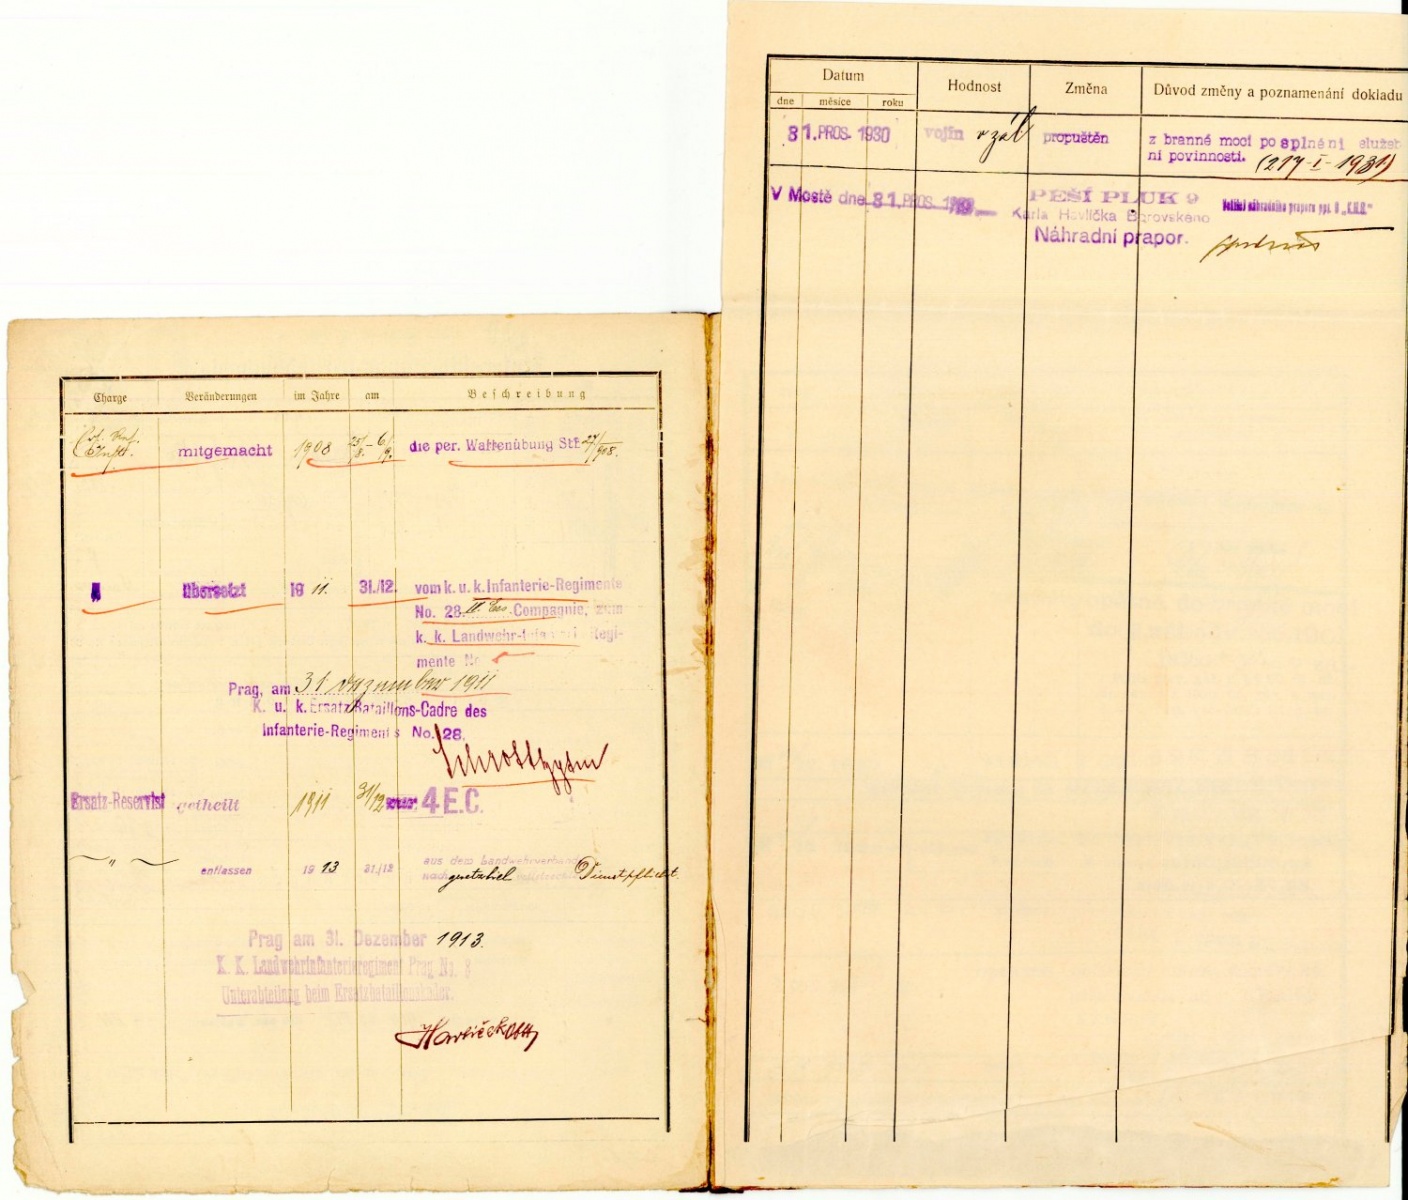 Charge Veränderungen im Jahre am Beschreibung
mitgemacht 1908 25/8.-6/9. die per. Waffenübung Stb 27/908.
übersetzt 1911. 31./12. vom k. u. k. Infanterie-Regimente
No. 28. Compagnie, zum
k. k. Landwehr-Infanterie Regi-
mente No
Prag, am 31 Dezember 1911
K. u. k. Ersatz Bataillons-Cadre des
Infanterie-Regiments No. 28.
Ersatz-Reservist getheilt 1911 31/12 4 E.C.
„ entlassen 1913 31./12 aus dem Landwehrverband
nach gesetzlich Dienstpflicht.
Prag am 31. Dezember 1913.
K. K. Landwehrinfanterieregiment Prag No. 8
Unterabteilung beim Ersatzbataillonskader.
Havlíček
Datum Hodnost Změna Důvod změny a poznamenání dokladu
dne měsíce roku
31. PROS. 1930 vojín v zál propuštěn z branné moci po splnění služeb
ní povinnosti. (217-I-1931)
V Mostě dne 31. PROS. PĚŠÍ PLUK 9 Velitel náhradního praporu ppl. 9 „K.H.B.“
Karla Havlíčka Borovského
Náhradní prapor.